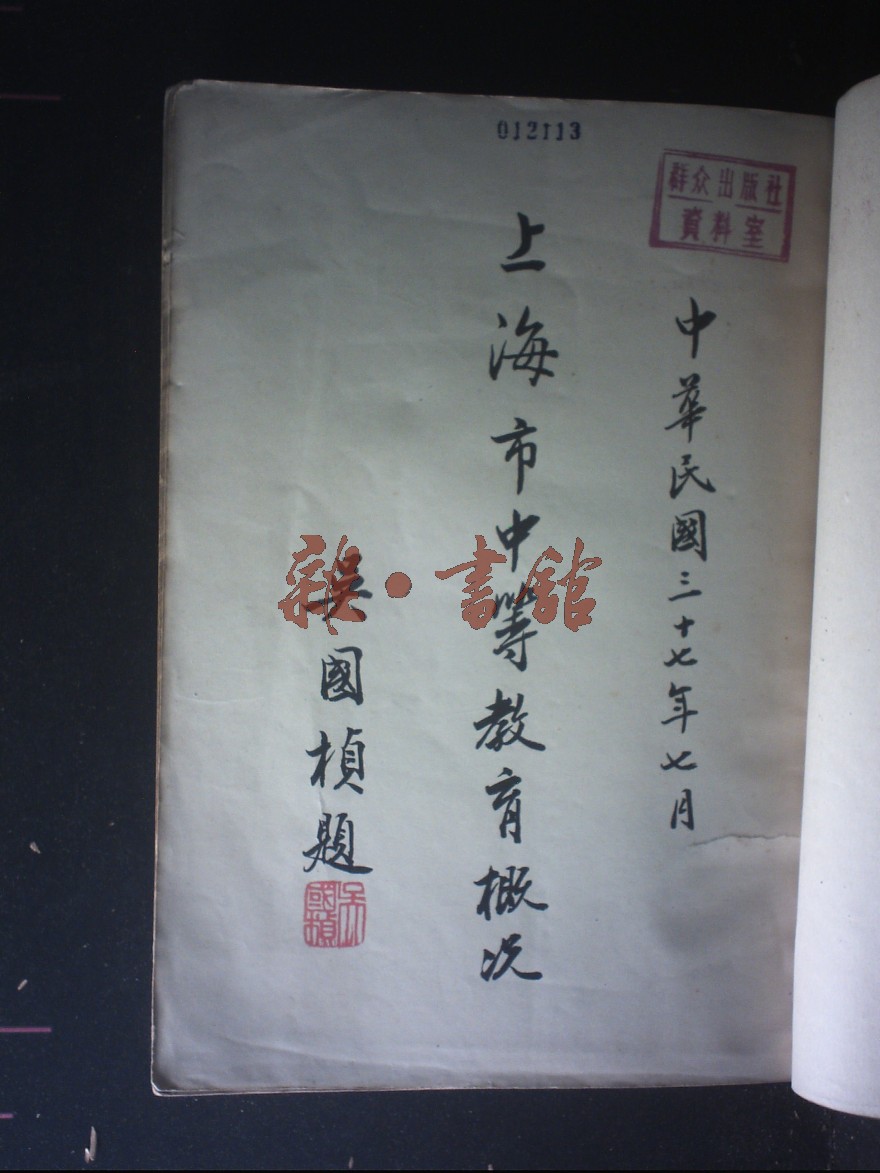 012113
群众出版社
資料室
中華民國三十七年七月
上海市中等教育概況
吳國楨題
吳國楨
雜·書館